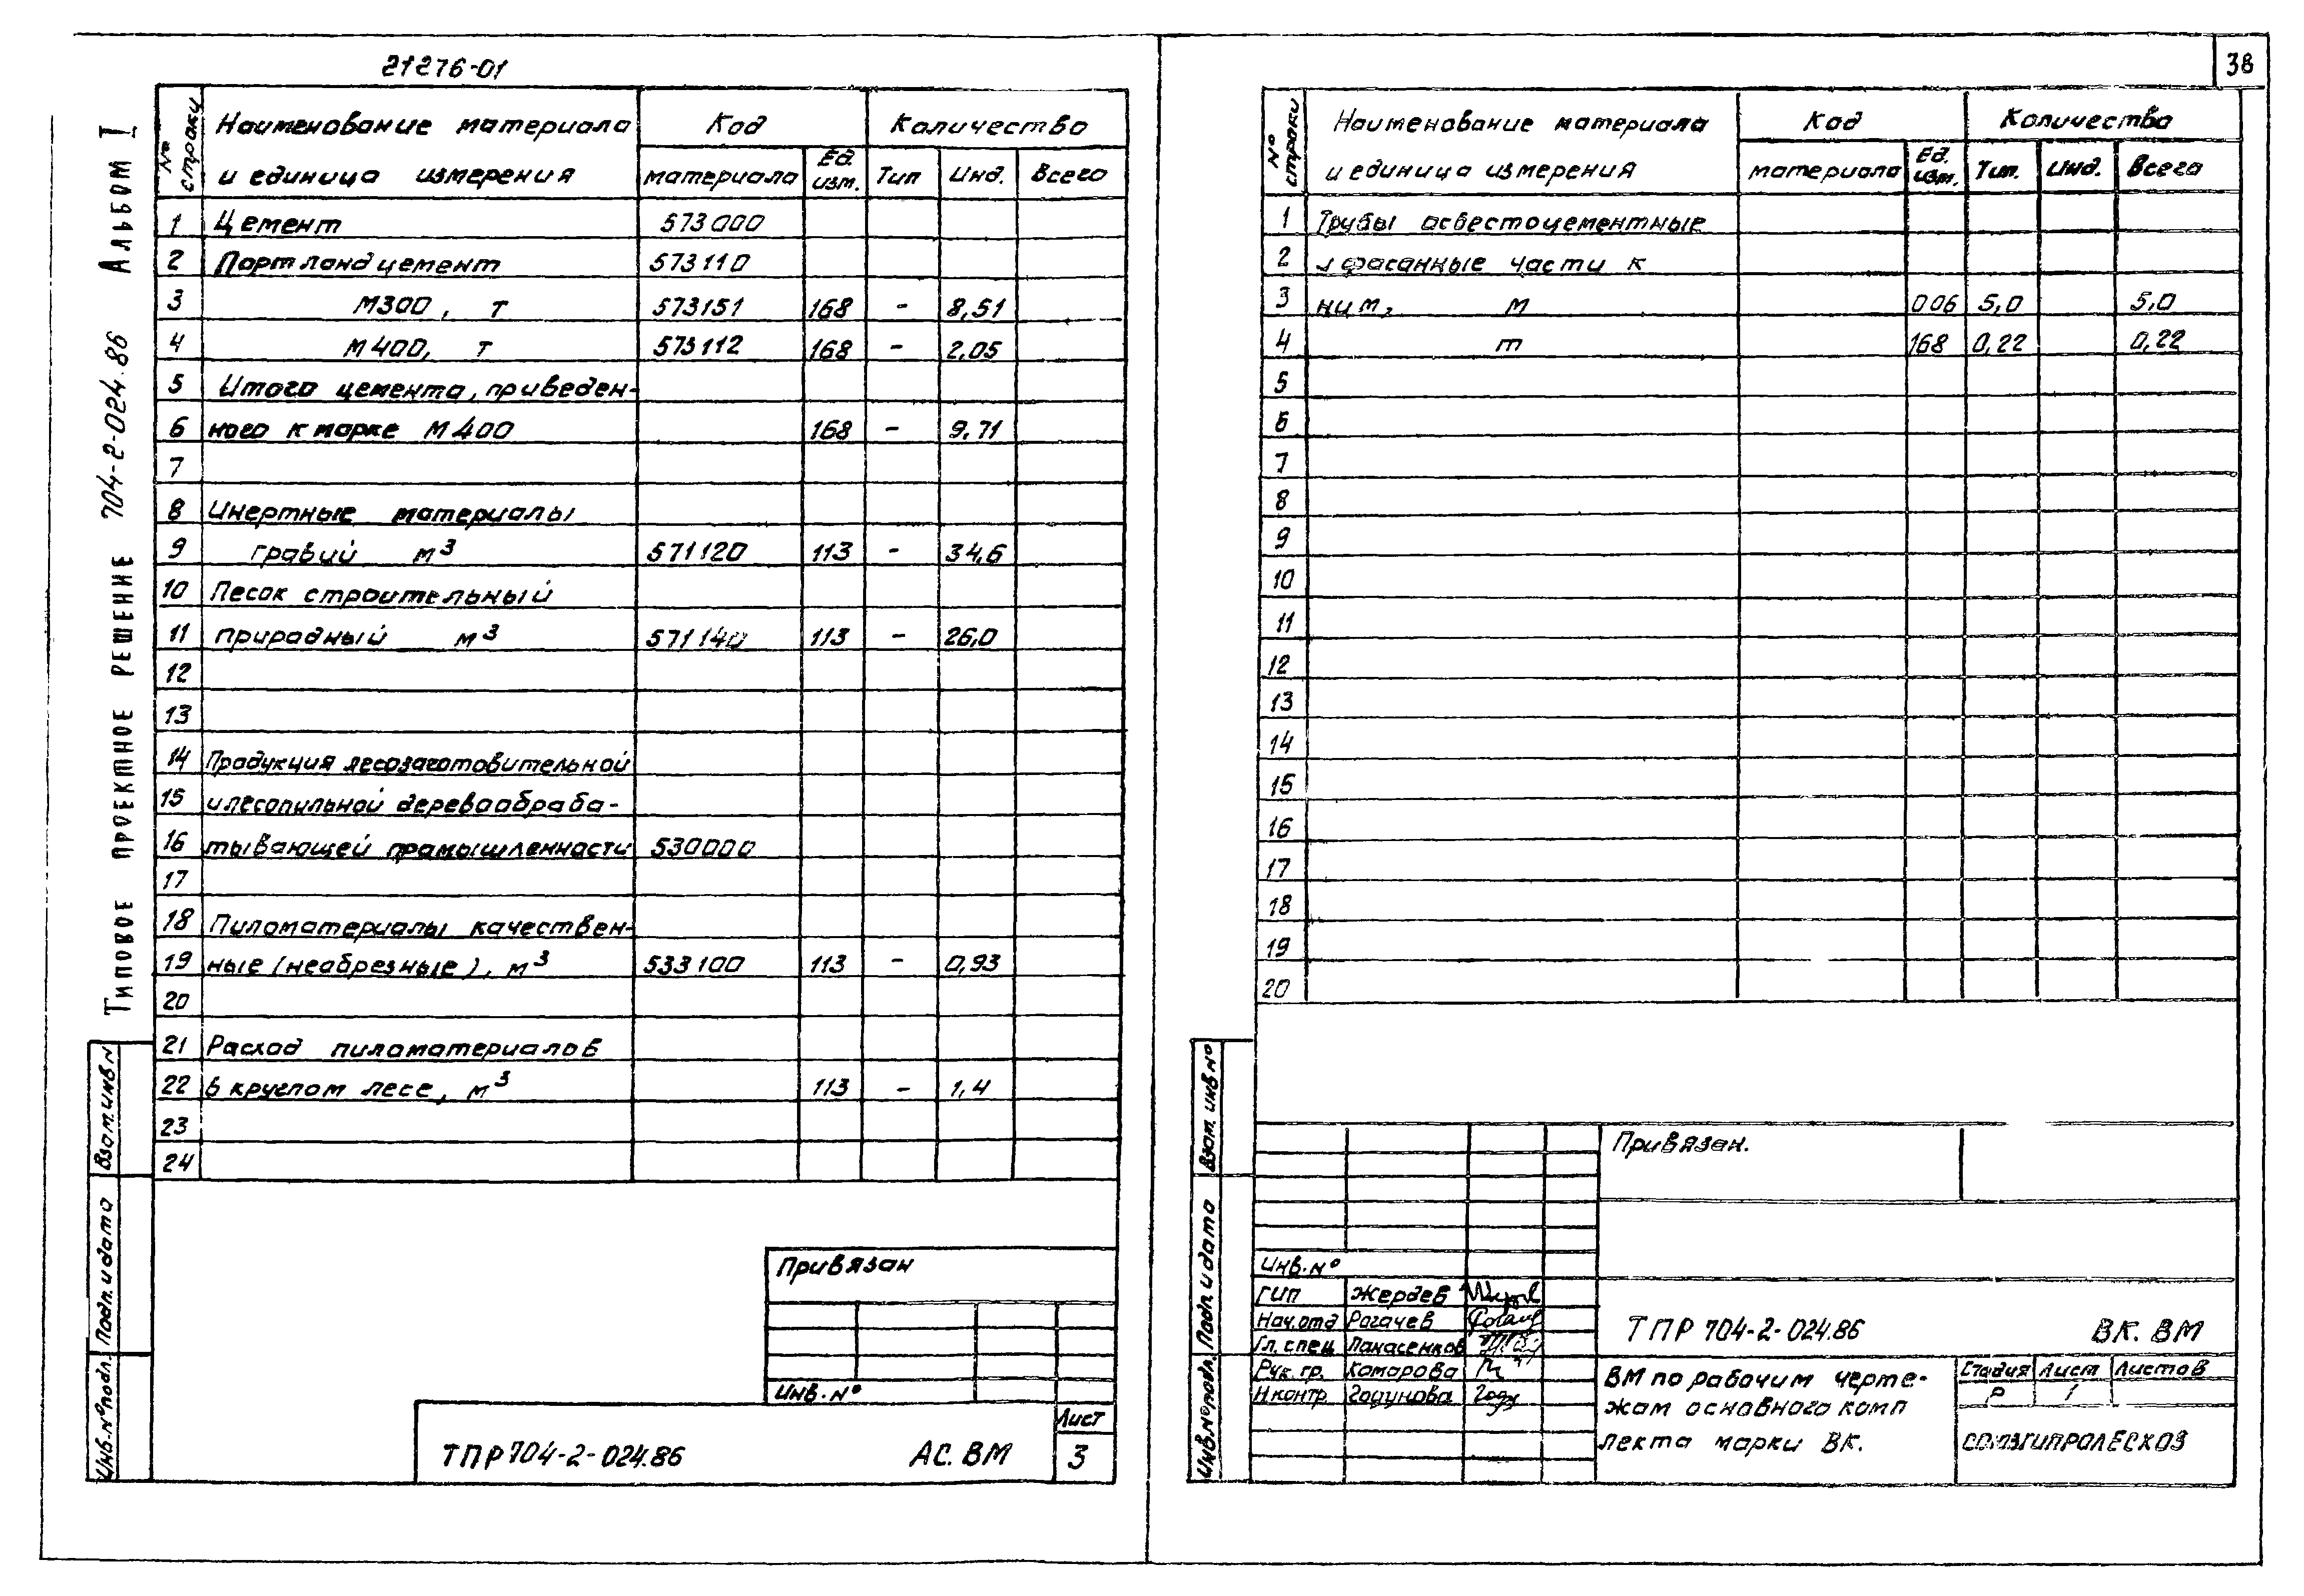 21276-01
38
Типовое проектное решение 704-2-024.86 Альбом I
№ строки Наименование материала и единица измерения Код Количество
материала Ед. изм. Тип Инд. Всего
1 Цемент 573000
2 Портландцемент 573110
3 М300, т 573151 168 - 8,51
4 М400, т 573112 168 - 2,05
5 Итого цемента, приведен-
6 ного к марке М400 168 - 9.71
7
8 Инертные материалы
9 гравий м³ 571120 113 - 34,6
10 Песок строительный
11 природный м³ 571140 113 - 26,0
12
13
14 Продукция лесозаготовительной
15 и лесопильной деревообраба-
16 тывающей промышленности 530000
17
18 Пиломатериалы качествен-
19 ные (необрезные), м³ 533100 113 - 0,93
20
21 Расход пиломатериалов
22 в круглом лесе, м³ 113 - 1,4
23
24
Привязан
Инв. №
ТПР 704-2-024.86 АС. ВМ
Лист
3
Взам. инв №
Подп. и дата
Инв. № подл.
№ строки Наименование материала и единица измерения Код Количество
материала Ед. изм. Тип. Инд. Всего
1 Трубы асбестоцементные
2 и фасанные части к
3 ним, м 006 5,0 5,0
4 т 168 0,22 0,22
5
6
7
8
9
10
11
12
13
14
15
16
17
18
19
20
Взам. инв №
Подп. и дата
Инв. № подл.
Привязан.
Инв. №
ГИП Жердев
Нач. отд Рогачев
Гл. спец Панасенков
Рук. гр. Комарова
Н контр. Годунова
ТПР 704-2-024.86 ВК. ВМ
ВМ по рабочим черте-
жам основного комп
лекта марки ВК.
Стадия Лист Листов
Р 1
Союзгипролесхоз